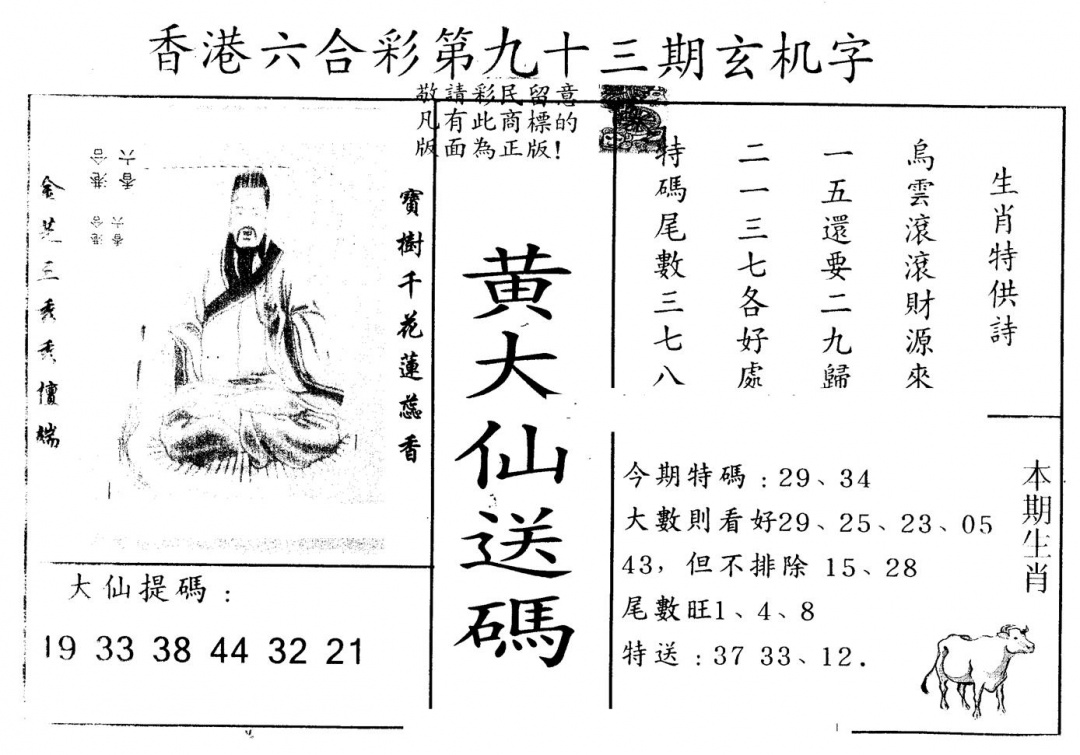 香港六合彩第九十三期玄机字
敬請彩民留意
凡有此商標的
版面為正版!
香港六合
香港六合
寶樹千花蓮蕊香
大仙提碼:
19 33 38 44 32 21
黃大仙送碼
生肖特供詩
烏雲滾滾財源來
一五還要二九歸
二一三七各好處
特碼尾數三七八
今期特碼:29、34
大數則看好29、25、23、05
43,但不排除 15、28
尾數旺1、4、8
特送:37 33、12.
本期生肖